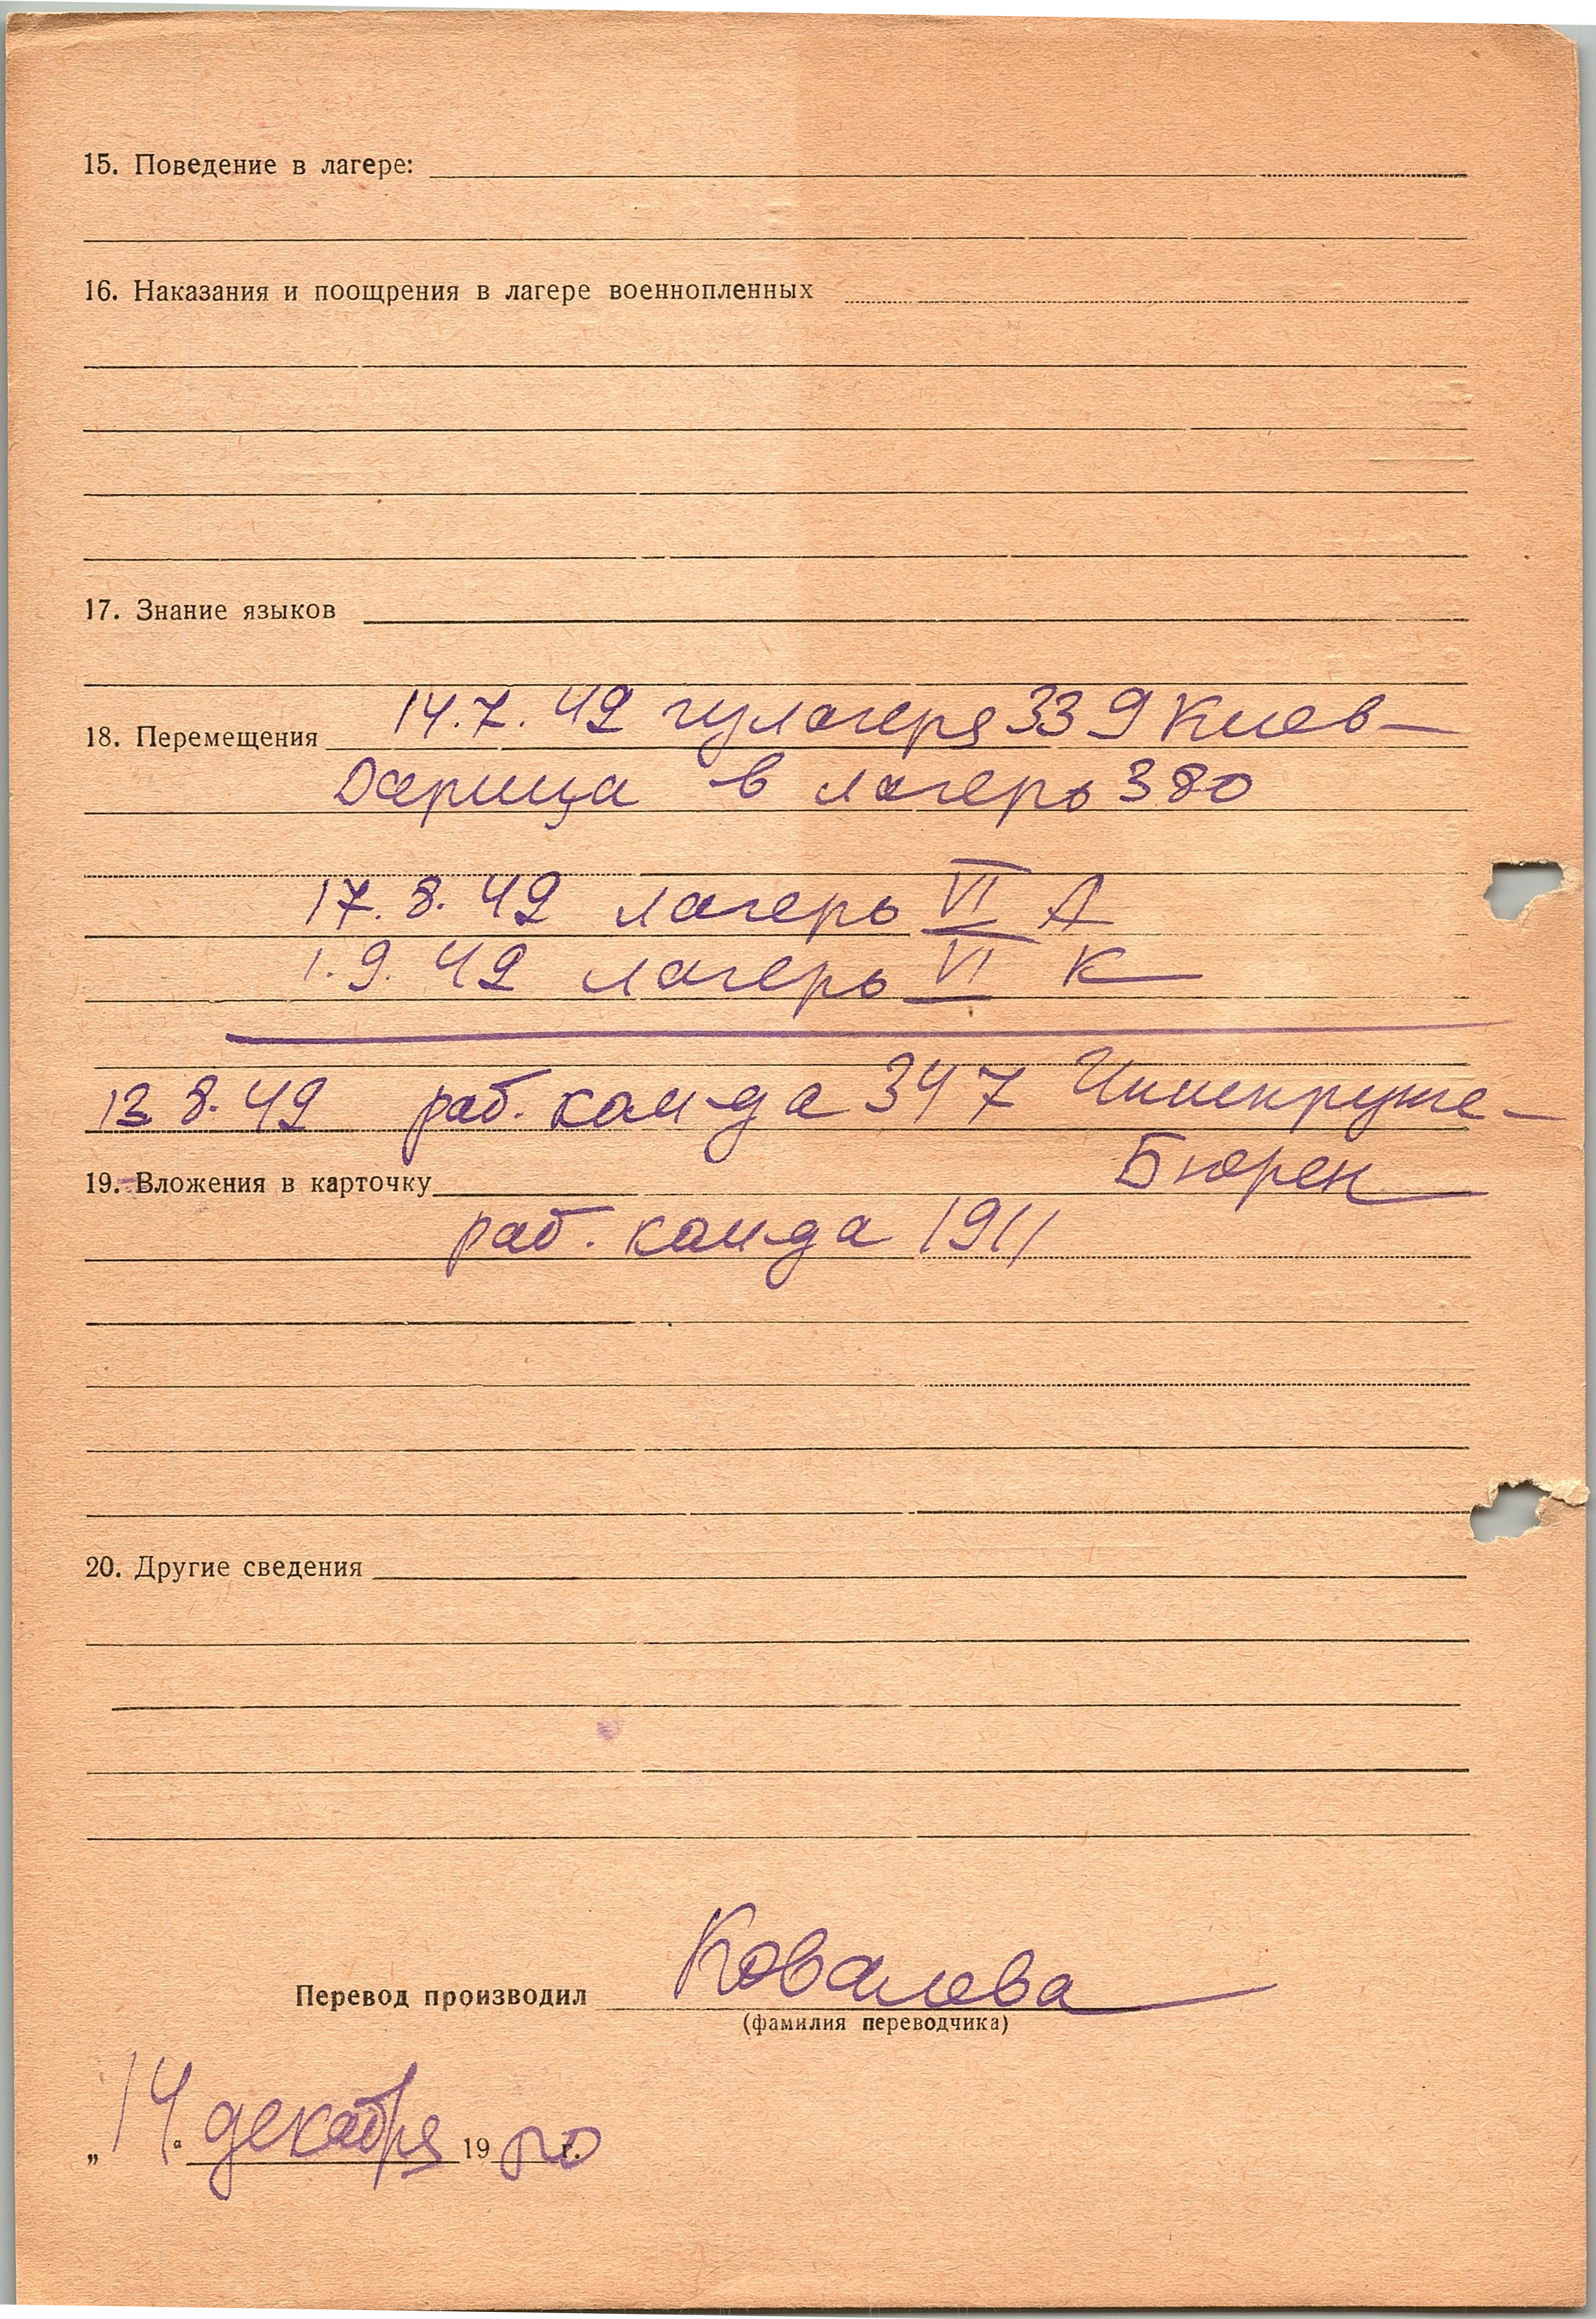 15. Поведение в лагере:
16. Наказания и поощрения в лагере военнопленных
17. Знание языков
18. Перемещения 14.7.42 из лагеря 339 Киев-
Дарница в лагерь 380
17.8.42 лагерь VI А
1.9.42 лагерь VI К
13 8.42 раб. кам-да 347
Бюрен
19. Вложения в карточку
раб. кам-да 1911
20. Другие сведения
Перевод производил Ковалева
(фамилия переводчика)
„14" декабря 1950 г.